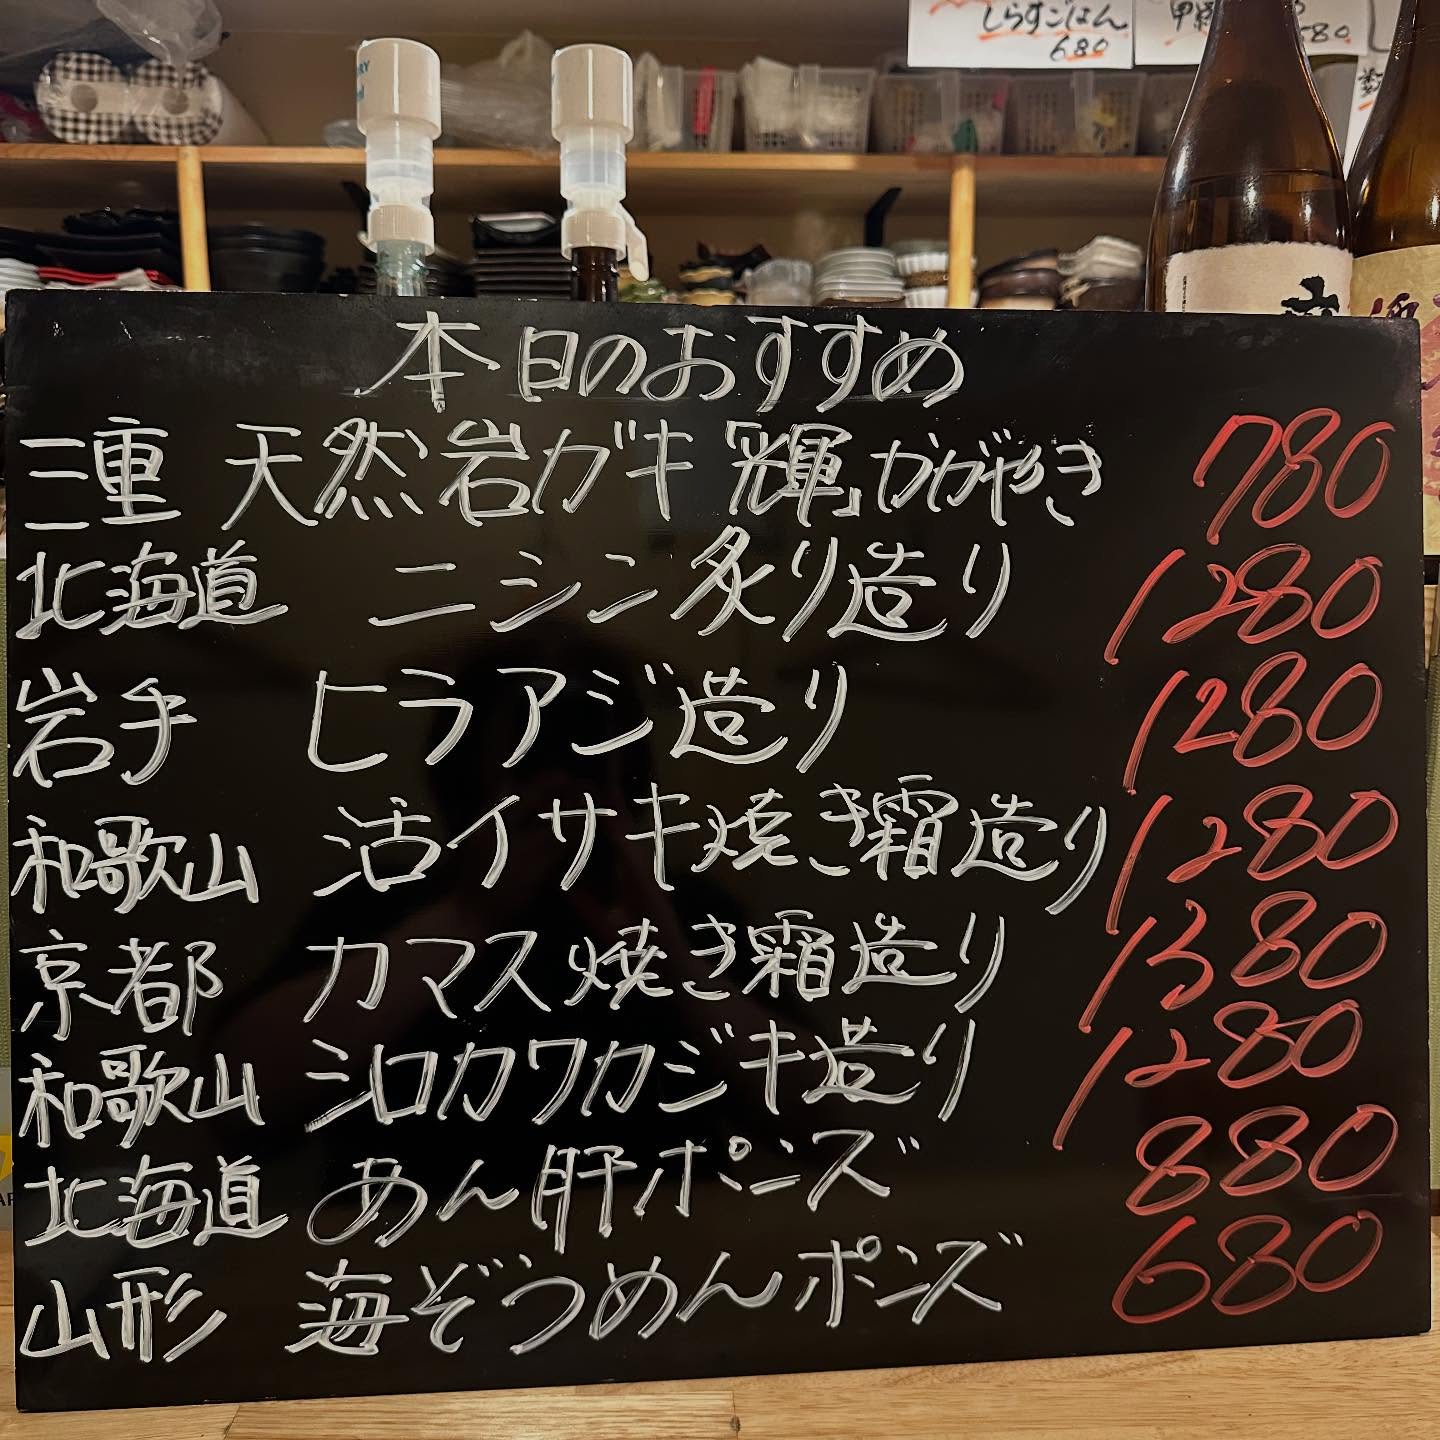 しらすごはん
680
580
本日のおすすめ
三重 天然岩ガキ「輝」かがやき 780
北海道 ニシン炙り造り 1280
岩手 ヒラアジ造り 1280
和歌山 活イサキ焼き霜造り 1280
京都 カマス焼き霜造り 1380
和歌山 シロカワカジキ造り 1280
北海道 あん肝ポンズ 880
山形 海ぞうめんポンズ 680